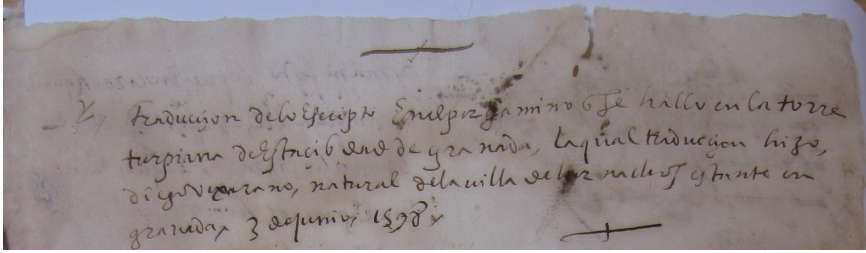 traducion de lo escripto en el pergamino q̃ se hallo en la torre
turpiana desta cibdad de granada, la qual traducion hizo,
diego vexarano, natural de la villa de hornachos estante en
granada, 3 de junio, 1598